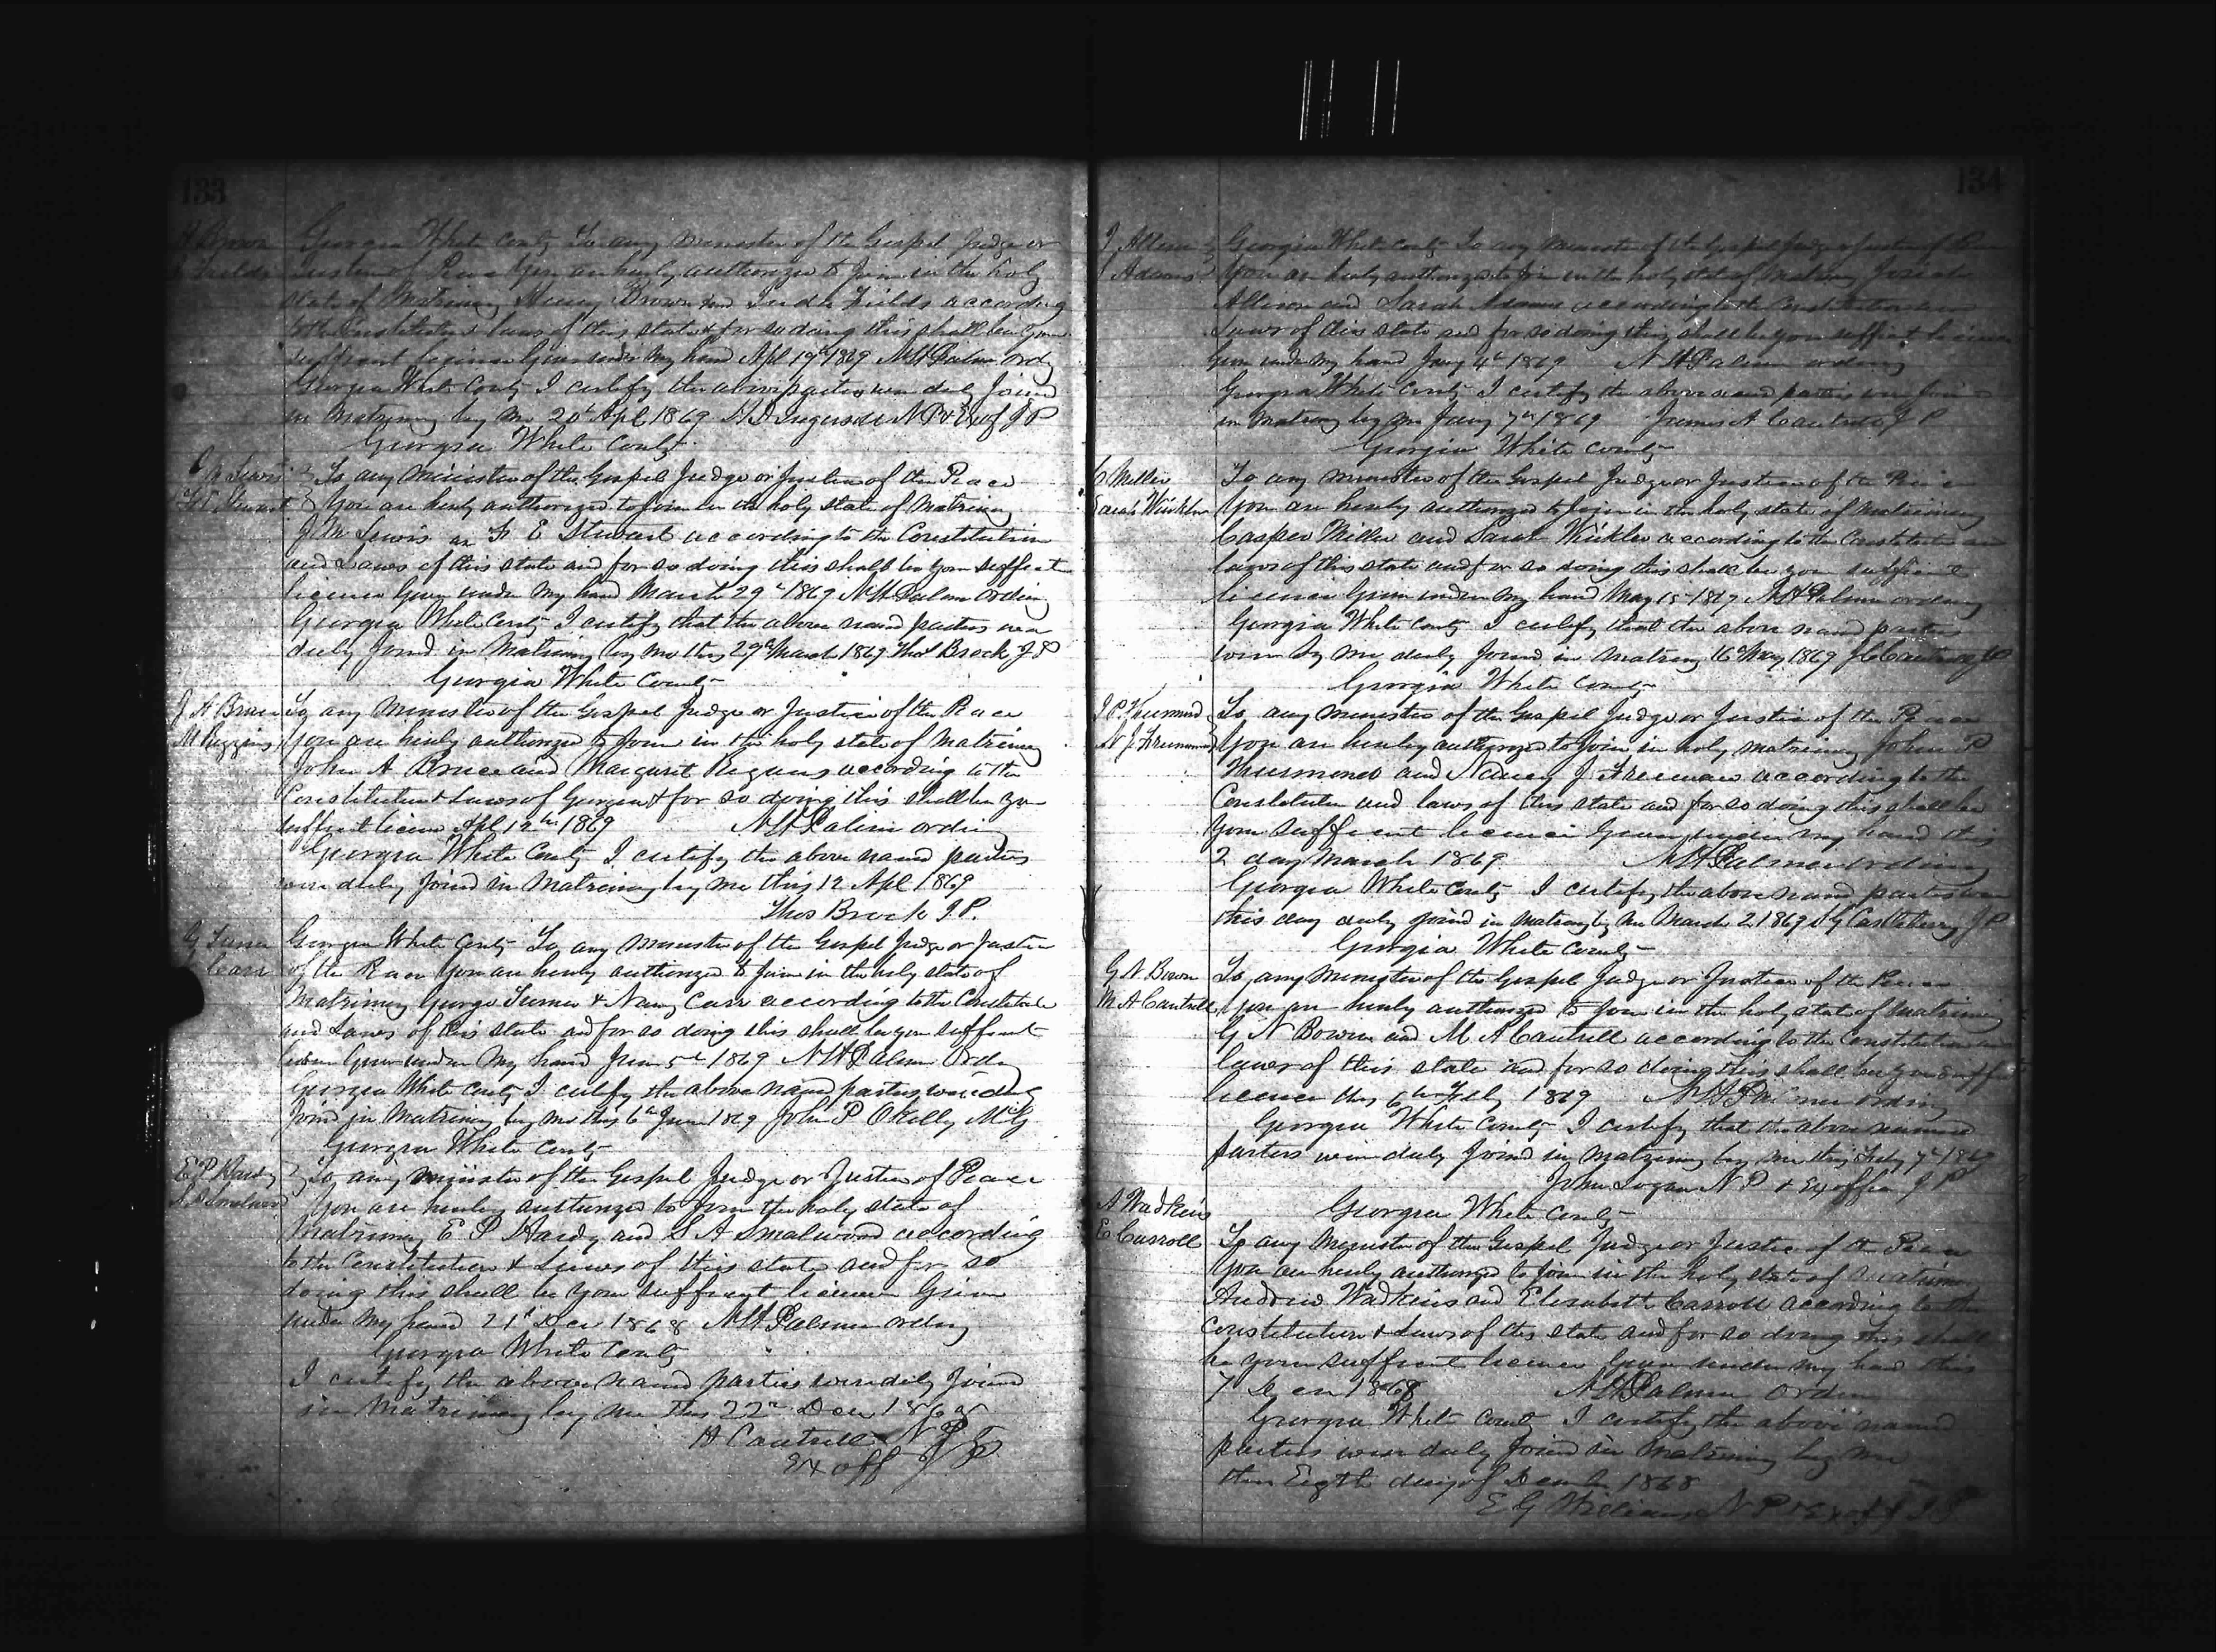 133
H Brown
Fields
Georgia White County To any Minister of the Gospel Judge or
Justice of Peace You are hereby authorized to Join in the holy
state of Matrimony Henry Brown and Fields according
to the Constitution & laws of this state & for so doing this shall be your
sufficient license Given under my hand Apl 19th 1869 Ordy
Georgia White County I certify the above parties were duly Joined
in Matrimony by me 20th Apl 1869 N P & Ex of J P
Georgia White County
J M Lewis
F E Stewart
To any minister of the Gospel Judge or Justice of the Peace
You are hereby authorized to Join in the holy state of Matrimony
J M Lewis an F E Stewart according to the Constitution
and Laws of this state and for so doing this shall be your sufficient
license Given under my hand March 29th 1869 N H Palmer Ordiny
Georgia White County I certify that the above named parties were
duly Joined in Matrimony by me this 29th March 1869 Thos Brock J P
Georgia White County
J A Bruce
M Riggins
To any Minister of the Gospel Judge or Justice of the Peace
You are hereby authorized to Join in the holy state of Matrimony
John A Bruce and Margaret Riggins according to the
Constitution & Laws of Georgia & for so doing this shall be your
sufficient license Apl 12th 1869 N H Palmer ordiny
Georgia White County I certify the above named parties
were duly Joined in Matrimony by me this 12 Apl 1869
Thos Brock J.P.
G Turner
N Carr
Georgia White County To any Minister of the Gospel Judge or Justice
of the Peace You are hereby authorized to Join in the holy state of
Matrimony George Turner & Nancy Carr according to the Constitution
and Laws of this state and for so doing this shall be your sufficient
license Given under my hand June 5th 1869 N H Palmer Ordny
Georgia White County I certify the above named parties were duly
Joined in Matrimony by me this 6th June 1869 John P OKelly M.G
Georgia White County
E P Hardy
S A Smalwood
To any minister of the Gospel Judge or Justice of Peace
You are hereby authorized to Join the holy state of
Matrimony E P Hardy and S A Smalwood according
to the Constitution & Laws of this state and for so
doing this shall be your sufficient license Given
under my hand 21st Dec 1868 N H Palmer ordiny
Georgia White County
I certify the above named parties were duly Joined
in Matrimony by me this 22nd Dec 1868
H Cantrell N P &
Ex off J P
134
J Allison
S Adams
Georgia White County To any Minister of the Gospel Judge or Justice of Peace
You are hereby authorized to Join in the holy state of Matrimony
Allison and Sarah Adams according to the Constitution and
Laws of this state and for so doing this shall be your sufficient license
Given under my hand Jany 4th 1869 N H Palmer ordiny
Georgia White County I certify the above named parties were Joined
in Matrimony by me Jany 7th 1869 James A Cantrell J P
Georgia White County
C Miller
Sarah Winkler
To any minister of the Gospel Judge or Justice of the Peace
You are hereby authorized to Join in the holy state of Matrimony
Casper Miller and Sarah Winkler according to the Constitution and
laws of this state and for so doing this shall be your sufficient
license Given under my hand May 15 1869 N H Palmer ordiny
Georgia White County I certify that the above named parties
were by me duly Joined in Matrimony 16th May 1869 J P
Georgia White County
J P Thurmond
N J Freeman
To any minister of the Gospel Judge or Justice of the Peace
You are hereby authorized to Join in holy matrimony John P
Thurmond and Nancy J Freeman according to the
Constitution and laws of this state and for so doing this shall be
Your sufficient license Given under my hand this
2 day March 1869 N H Palmer ordiny
Georgia White County I certify the above named parties were
this day duly joined in Matrimony by me March 2 1869 Castleberry J P
Georgia White County
G N Bowen
M A Cantrell
To any minister of the Gospel Judge or Justice of the Peace
You are hereby authorized to Join in the holy state of Matrimony
G N Bowen and M A Cantrell according to the Constitution and
laws of this state and for so doing this shall be your suff
license this 6th Feby 1869 N H Palmer ordiny
Georgia White County I certify that the above named
parties were duly Joined in Matrimony by me this Feby 7th 1869
John Logan N P & Ex officio J P
A Wadkins
E Carroll
Georgia White County
To any Minister of the Gospel Judge or Justice of the Peace
You are hereby authorized to Join in the holy state of Matrimony
Andrew Wadkins and Elizabeth Carroll according to the
Constitution & Laws of this state and for so doing this shall
be your sufficient license Given under my hand this
7 Decem 1868 N H Palmer Ordiny
Georgia White County I certify the above named
parties were duly Joined in Matrimony by me
this Eigth day of December 1868
E G Williams N P & Ex off J P